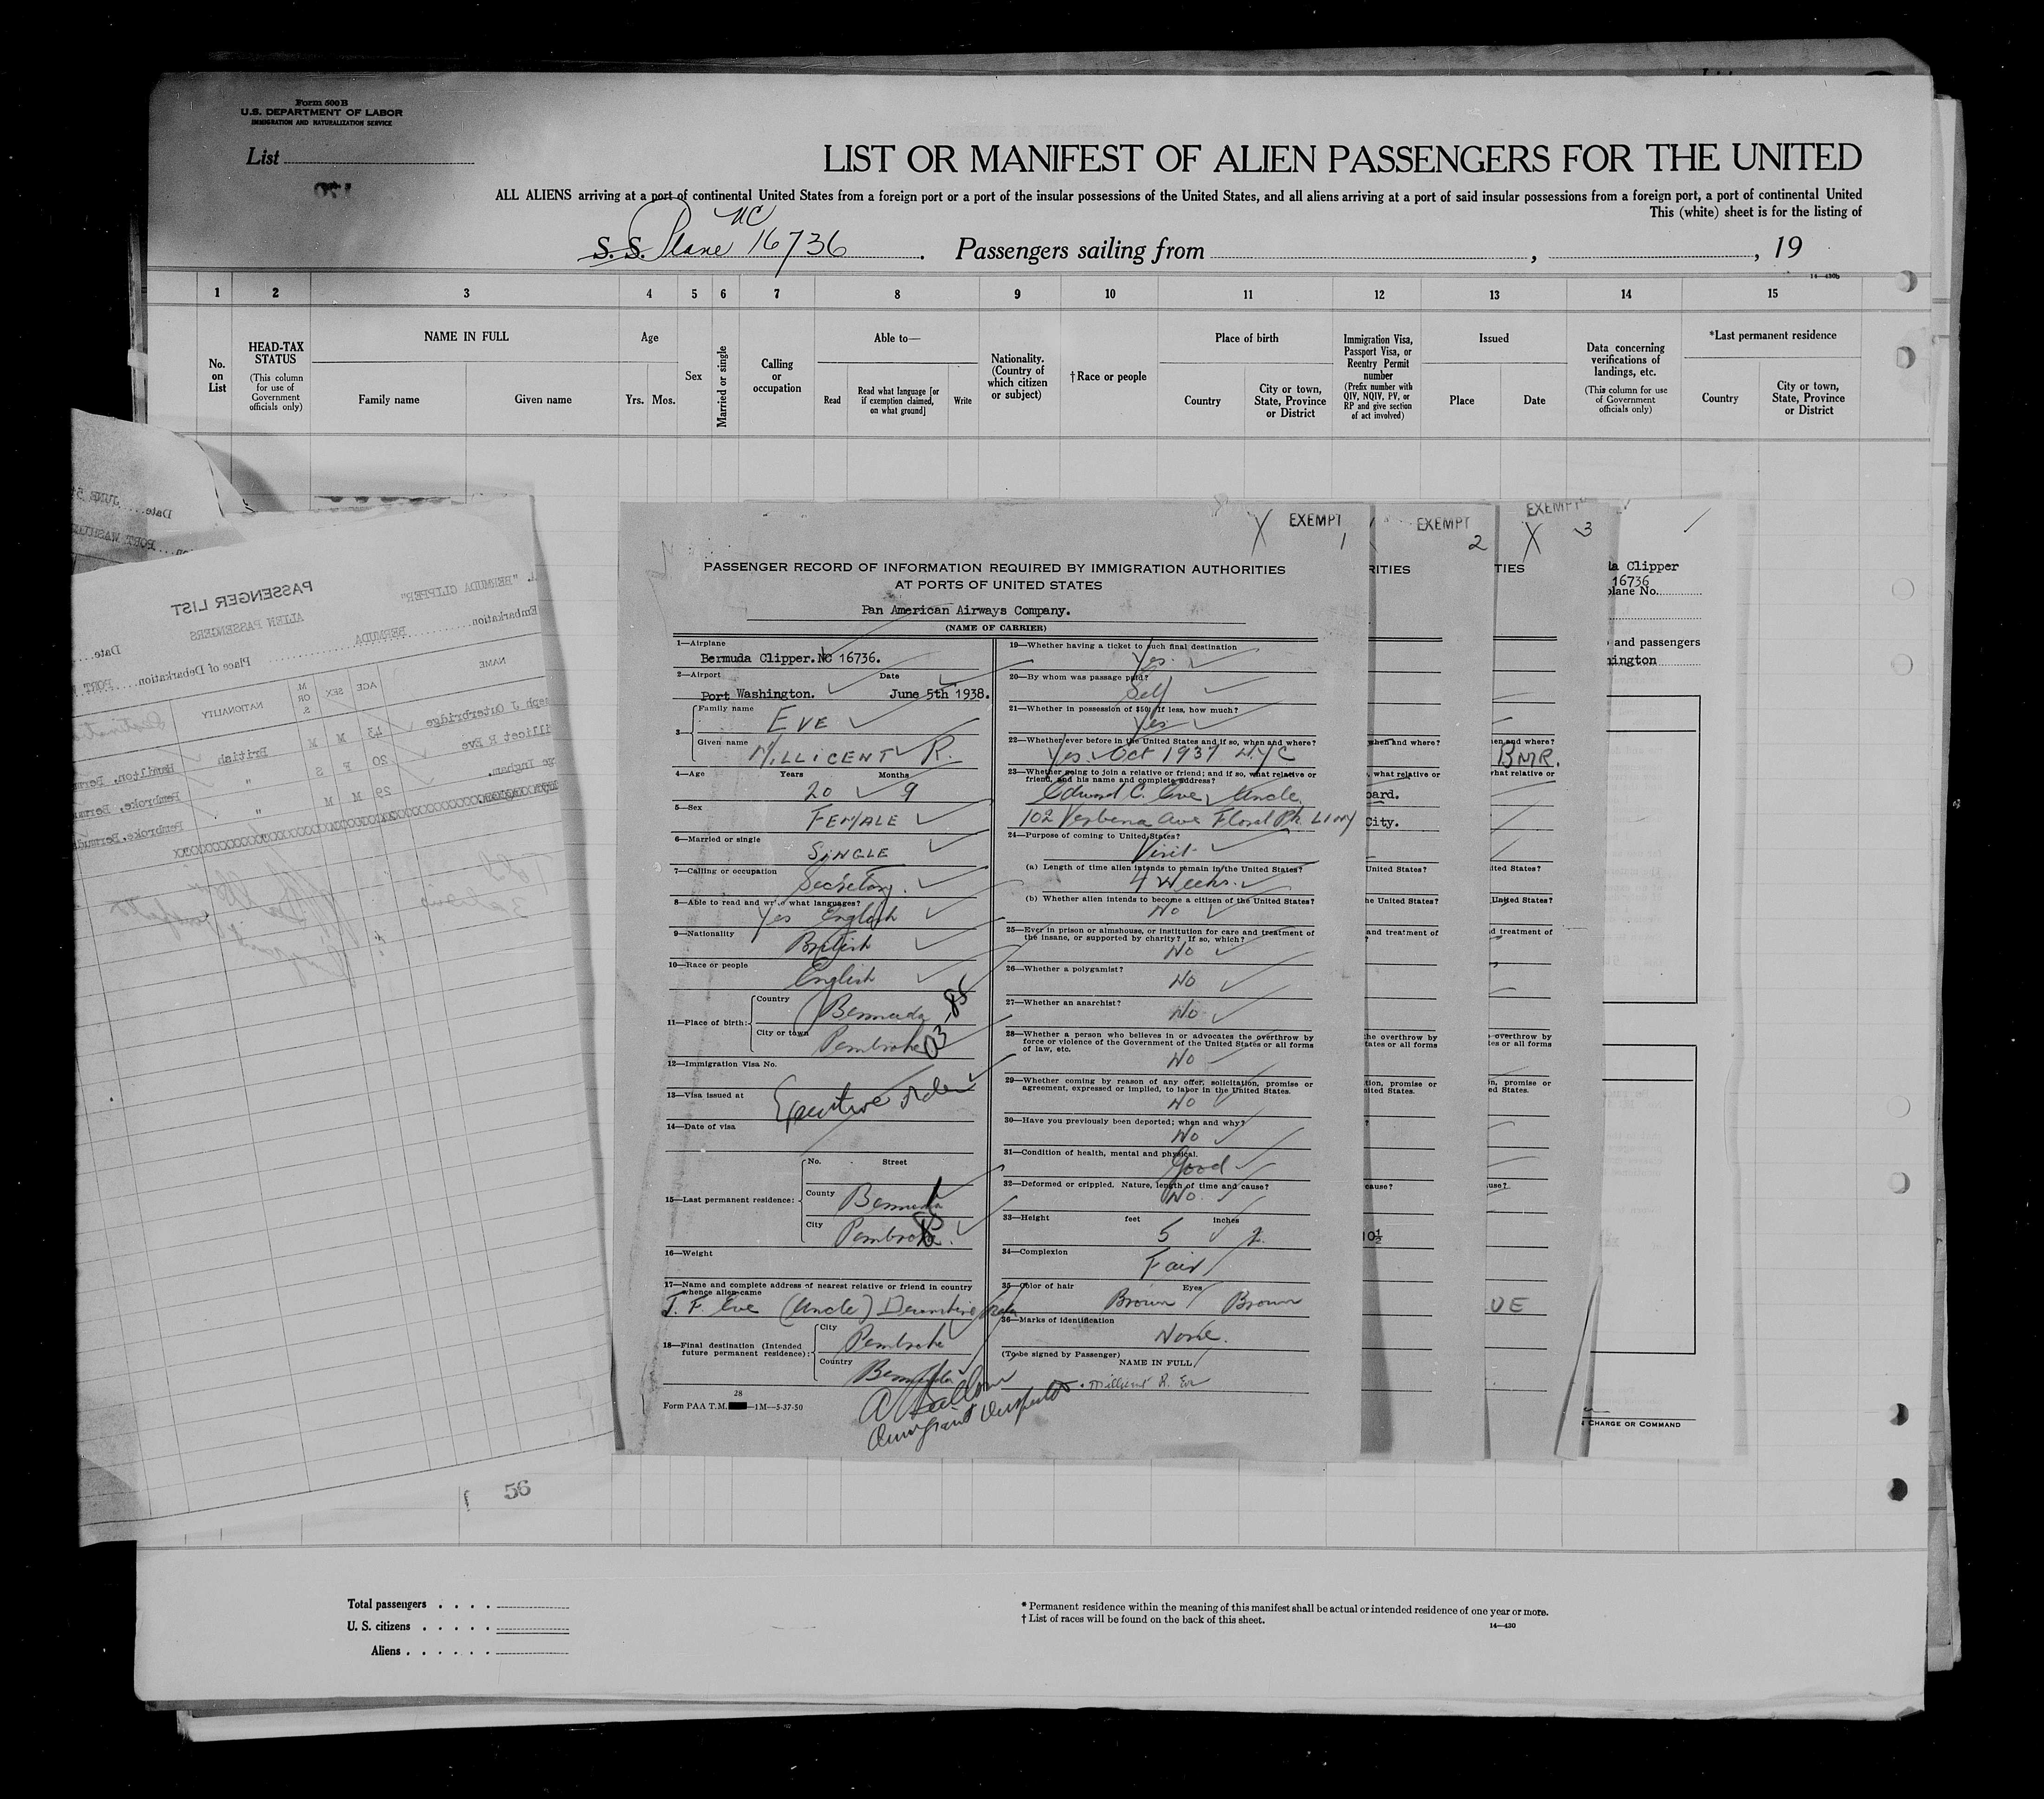 Form 500 B
U.S. DEPARTMENT OF LABOR
IMMIGRATION AND NATURALIZATION SERVICE
List
LIST OR MANIFEST OF ALIEN PASSENGERS FOR THE UNITED
ALL ALIENS arriving at a port of continental United States from a foreign port or a port of the insular possessions of the United States, and all aliens arriving at a port of said insular possessions from a foreign port, a port of continental United
This (white) sheet is for the listing of
NC
S.S. Plane 16736. Passengers sailing from , , 19
14—430b
1 2 3 4 5 6 7 8 9 10 11 12 13 14 15
No. on List
HEAD-TAX STATUS
(This column for use of Government officials only)
NAME IN FULL
Family name
Given name
Age
Yrs. Mos.
Sex
Married or single
Calling or occupation
Able to—
Read
Read what language [or if exemption claimed, on what ground]
Write
Nationality. (Country of which citizen or subject)
†Race or people
Place of birth
Country
City or town, State, Province or District
Immigration Visa, Passport Visa, or Reentry Permit number
(Prefix number with QIV, NQIV, PV, or RP and give section of act involved)
Issued
Place
Date
Data concerning verifications of landings, etc.
(This column for use of Government officials only)
*Last permanent residence
Country
City or town, State, Province or District
Date JUNE 5
PORT WASHIN
PASSENGER LIST
"BERMUDA CLIPPER"
ALIEN PASSENGERS
Embarkation BERMUDA Place of Debarkation PORT
Date
NAME AGE SEX M. OR S. NATIONALITY
eph J Outerbridge 43 M M British Hamilton, Berm
illicet R Eve 20 F S " Pembroke, Berm
ge Ingham. 29 M M " Pembroke, Bermuda
56
X EXEMPT
1
EXEMPT
2
EXEMPT
X 3
PASSENGER RECORD OF INFORMATION REQUIRED BY IMMIGRATION AUTHORITIES
AT PORTS OF UNITED STATES
Pan American Airways Company.
(NAME OF CARRIER)
1—Airplane
Bermuda Clipper. NC 16736.
2—Airport Date
Port Washington. June 5th 1938.
3— Family name
EVE
Given name
MILLICENT R.
4—Age Years Months
20 9
5—Sex
FEMALE
6—Married or single
SINGLE
7—Calling or occupation
Secretary.
8—Able to read and write what languages?
Yes English
9—Nationality
British
10—Race or people
English
11—Place of birth: Country
Bermuda
City or town
Pembroke
03-85
12—Immigration Visa No.
13—Visa issued at
Executive Order
14—Date of visa
No. Street
15—Last permanent residence:
County
Bermuda
City
Pembroke.
16—Weight
17—Name and complete address of nearest relative or friend in country whence alien came
J. F. Eve (Uncle) Devonshire
18—Final destination (Intended future permanent residence):
City
Pembroke
Country
Bermuda
28
Form PAA T.M. —1M—5-37-50
Immigrant Inspector
19—Whether having a ticket to such final destination
Yes.
20—By whom was passage paid?
Self
21—Whether in possession of $50, if less, how much?
Yes
22—Whether ever before in the United States and if so, when and where?
Yes. Oct 1937 N.Y.C
23—Whether going to join a relative or friend; and if so, what relative or friend, and his name and complete address?
Edward C. Eve, Uncle.
102 Verbena Ave Floral Pk. L I NY
24—Purpose of coming to United States?
Visit
(a) Length of time alien intends to remain in the United States?
4 Weeks.
(b) Whether alien intends to become a citizen of the United States?
No
25—Ever in prison or almshouse, or institution for care and treatment of the insane, or supported by charity? If so, which?
No
26—Whether a polygamist?
No
27—Whether an anarchist?
No
28—Whether a person who believes in or advocates the overthrow by force or violence of the Government of the United States or all forms of law, etc.
No
29—Whether coming by reason of any offer, solicitation, promise or agreement, expressed or implied, to labor in the United States.
No
30—Have you previously been deported; when and why?
No
31—Condition of health, mental and physical.
Good
32—Deformed or crippled. Nature, length of time and cause?
No.
33—Height feet inches
5 2
34—Complexion
Fair
35—Color of hair Eyes
Brown Brown
36—Marks of identification
None.
(To be signed by Passenger)
NAME IN FULL
Millicent R. Eve
RITIES
when and where?
what relative or
oard.
City.
United States?
he United States?
and treatment of
he overthrow by
tates or all forms
tion, promise or
nited States.
cause?
10½
TIES
en and where?
BMR.
what relative or
ited States?
United States?
d treatment of
overthrow by
tes or all forms
n, promise or
ed States.
use?
UE
a Clipper
16736
plane No.
and passengers
hington
CHARGE OR COMMAND
Total passengers
U. S. citizens
Aliens
* Permanent residence within the meaning of this manifest shall be actual or intended residence of one year or more.
† List of races will be found on the back of this sheet.
14—430